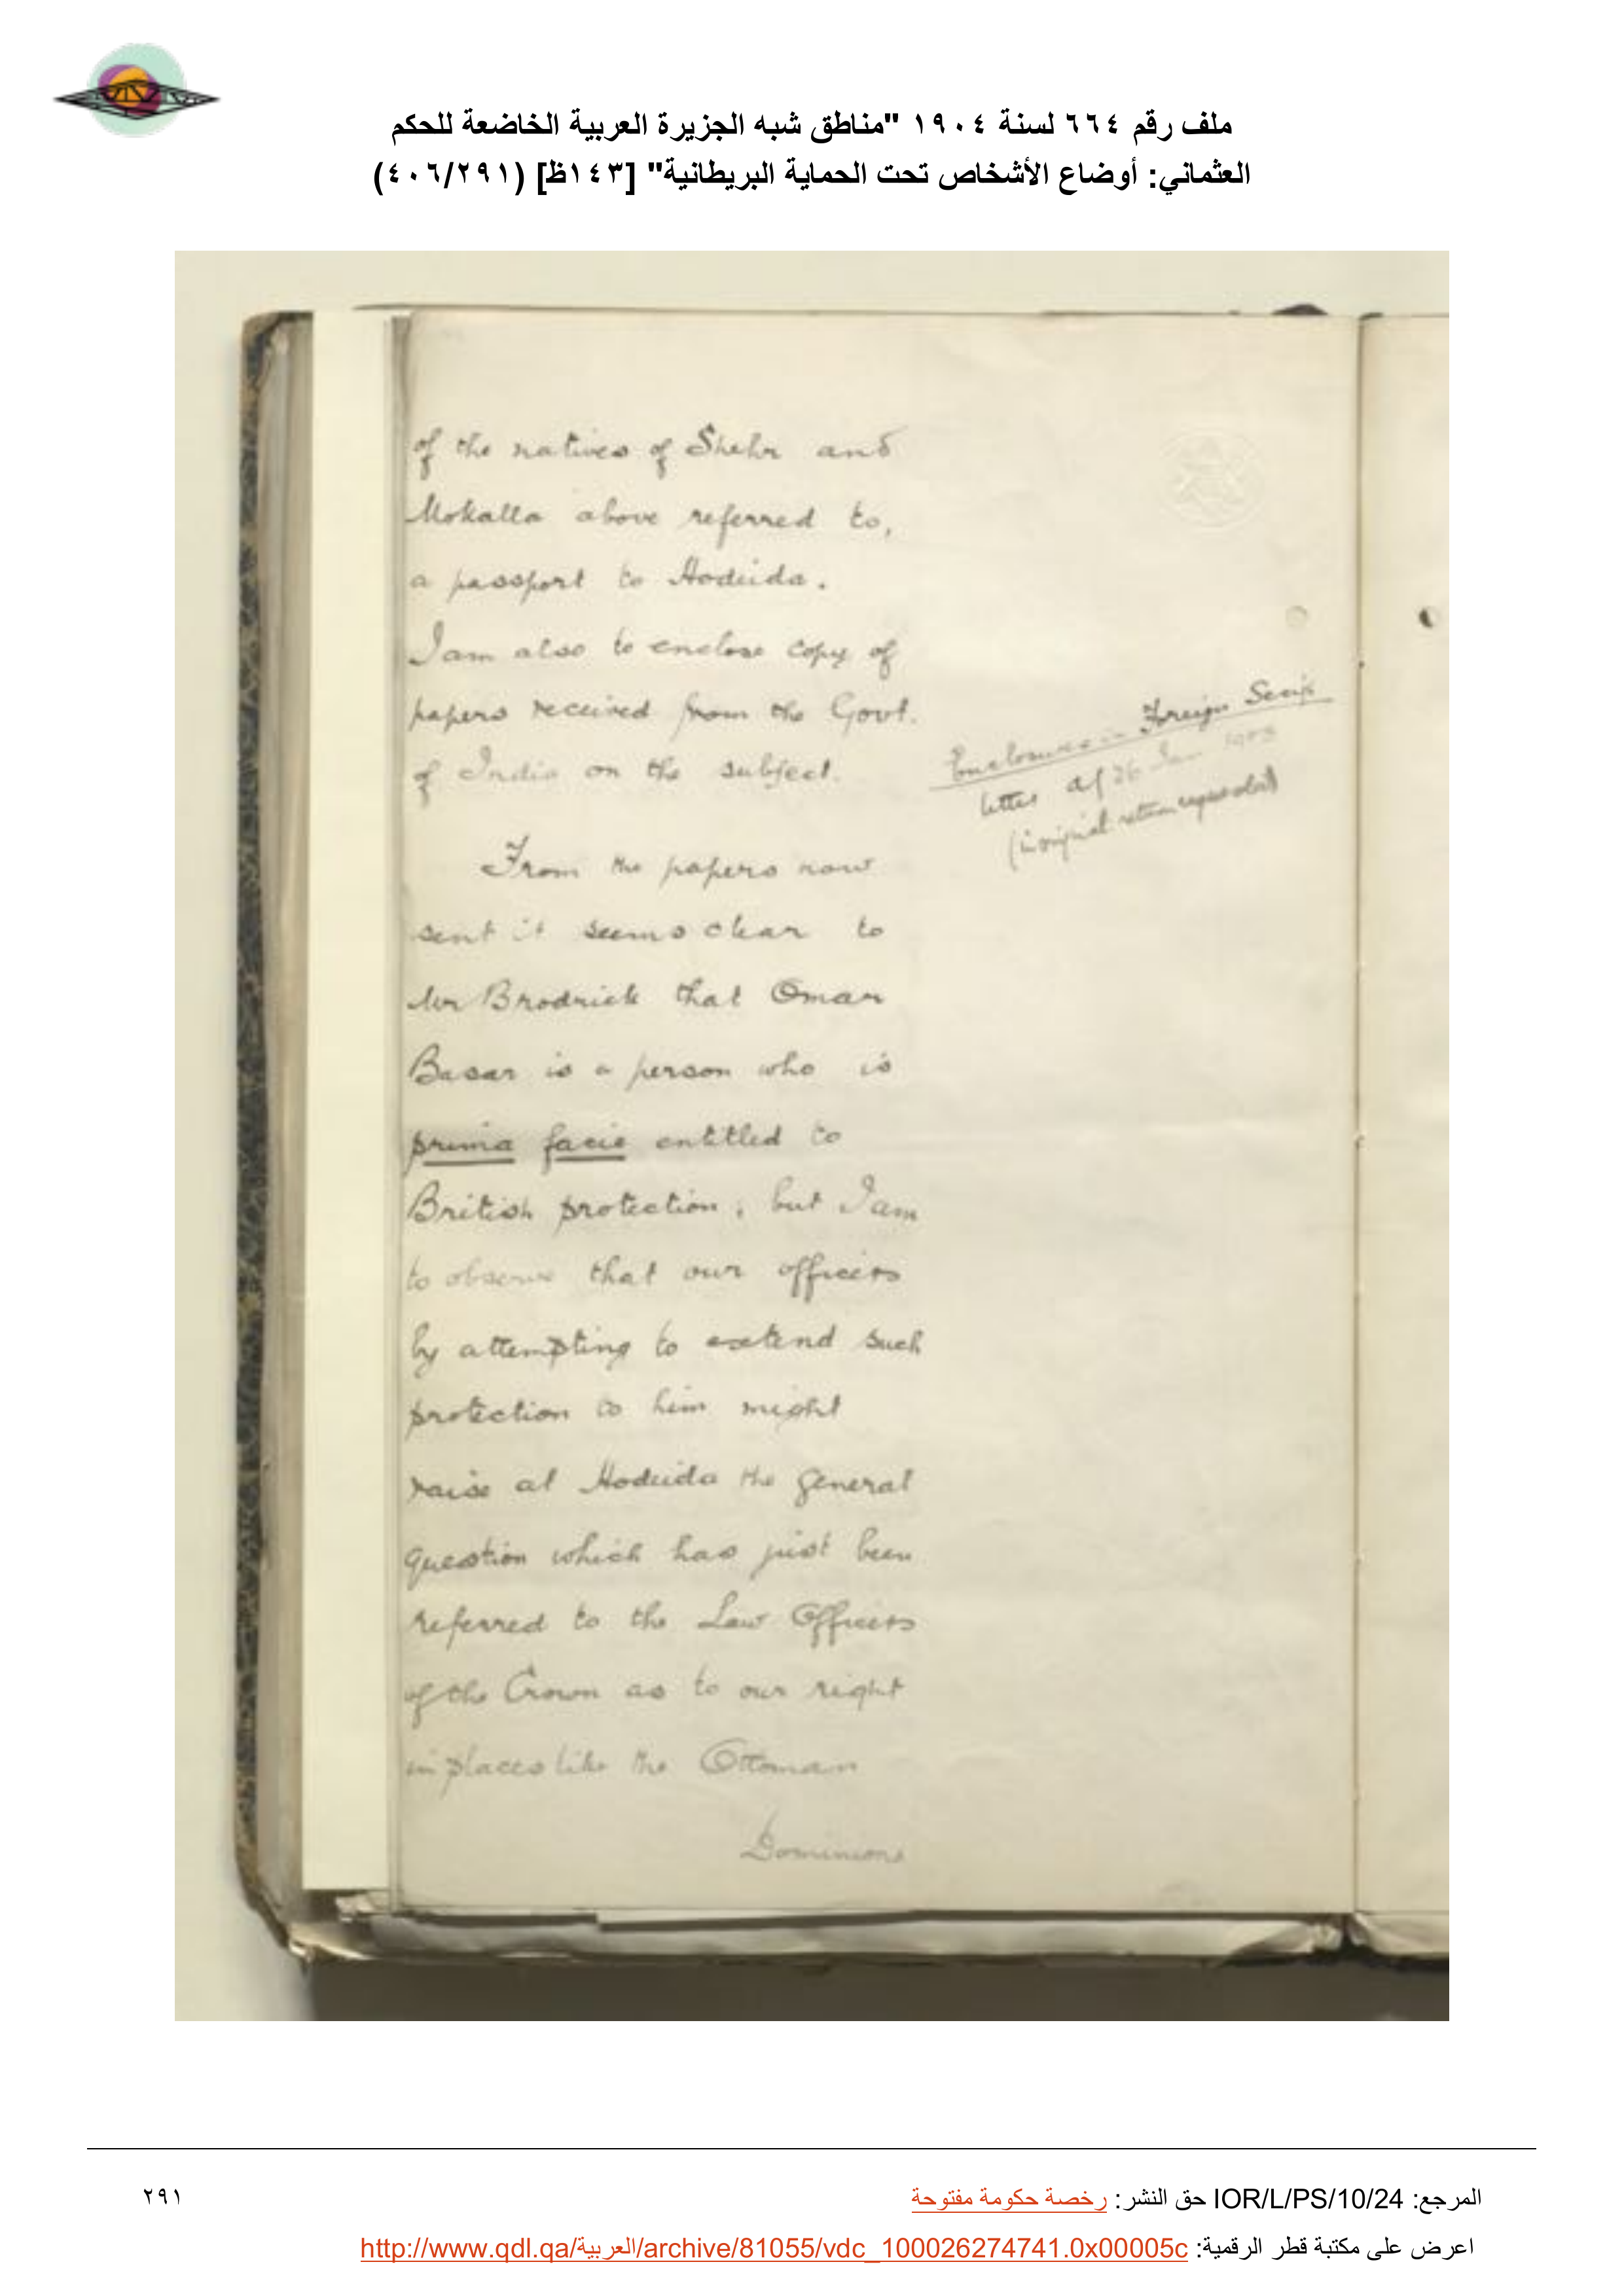 ملف رقم ٦٦٤ لسنة ١٩٠٤ "مناطق شبه الجزيرة العربية الخاضعة للحكم
العثماني: أوضاع الأشخاص تحت الحماية البريطانية" [١٤٣ظ] (٤٠٦/٢٩١)
of the natives of Shehr and
Mokalla above referred to,
a passport to Hodeida.
I am also to enclose copy of
papers received from the Govt.
of India on the subject.
Enclosures in Foreign Secy's
letter of 26 Jan 1905
(in original return requested)
From the papers now
sent it seems clear to
Mr Brodrick that Omar
Basar is a person who is
prima facie entitled to
British protection; but I am
to observe that our officers
by attempting to extend such
protection to him might
raise at Hodeida the general
question which has just been
referred to the Law Officers
of the Crown as to our right
in places like the Ottoman
Dominions
المرجع: IOR/L/PS/10/24 حق النشر: رخصة حكومة مفتوحة
٢٩١
اعرض على مكتبة قطر الرقمية: http://www.qdl.qa/العربية/archive/81055/vdc_100026274741.0x00005c